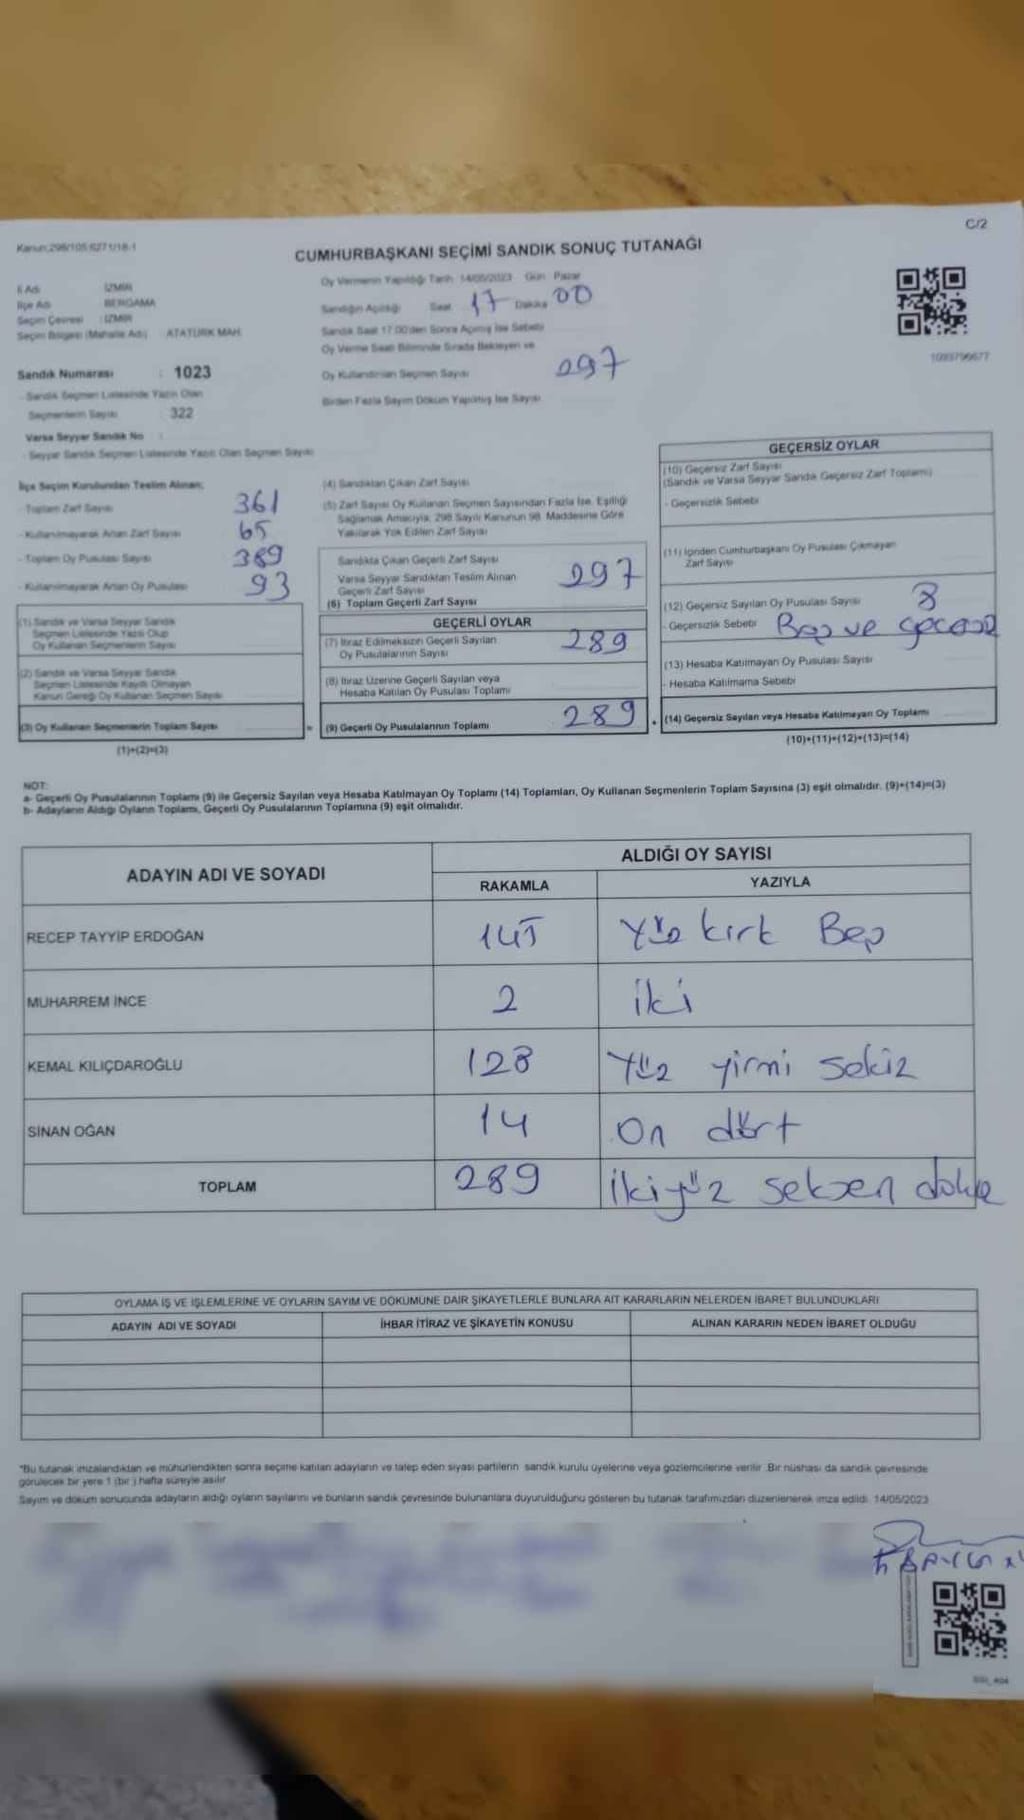 C/2
Kanun:298/105 6271/18-1
CUMHURBAŞKANI SEÇİMİ SANDIK SONUÇ TUTANAĞI
İl Adı : İZMİR
İlçe Adı : BERGAMA
Seçim Çevresi : İZMİR
Seçim Bölgesi (Mahalle Adı) : ATATÜRK MAH.
Sandık Numarası : 1023
- Sandık Seçmen Listesinde Yazılı Olan
Seçmenlerin Sayısı : 322
Varsa Seyyar Sandık No :
- Seyyar Sandık Seçmen Listesinde Yazılı Olan Seçmen Sayısı
Oy Vermenin Yapıldığı Tarih 14/05/2023 Gün Pazar
Sandığın Açıldığı Saat 17 Dakika 00
Sandık Saat 17.00'den Sonra Açılmış İse Sebebi
Oy Verme Saati Bitiminde Sırada Bekleyen ve
Oy Kullandırılan Seçmen Sayısı 297
Birden Fazla Sayım Döküm Yapılmış İse Sayısı
1093796677
İlçe Seçim Kurulundan Teslim Alınan;
- Toplam Zarf Sayısı 361
- Kullanılmayarak Artan Zarf Sayısı 65
- Toplam Oy Pusulası Sayısı 389
- Kullanılmayarak Artan Oy Pusulası 93
(1) Sandık ve Varsa Seyyar Sandık
Seçmen Listesinde Yazılı Olup
Oy Kullanan Seçmenlerin Sayısı
(2) Sandık ve Varsa Seyyar Sandık
Seçmen Listesinde Kayıtlı Olmayan
Kanun Gereği Oy Kullanan Seçmen Sayısı
(3) Oy Kullanan Seçmenlerin Toplam Sayısı
(1)+(2)=(3)
(4) Sandıktan Çıkan Zarf Sayısı
(5) Zarf Sayısı Oy Kullanan Seçmen Sayısından Fazla İse, Eşitliği
Sağlamak Amacıyla, 298 Sayılı Kanunun 98. Maddesine Göre
Yakılarak Yok Edilen Zarf Sayısı
Sandıkta Çıkan Geçerli Zarf Sayısı
Varsa Seyyar Sandıktan Teslim Alınan
Geçerli Zarf Sayısı
(6) Toplam Geçerli Zarf Sayısı 297
GEÇERLİ OYLAR
(7) İtiraz Edilmeksizin Geçerli Sayılan
Oy Pusulalarının Sayısı 289
(8) İtiraz Üzerine Geçerli Sayılan veya
Hesaba Katılan Oy Pusulası Toplamı
= (9) Geçerli Oy Pusulalarının Toplamı 289
GEÇERSİZ OYLAR
(10) Geçersiz Zarf Sayısı
(Sandık ve Varsa Seyyar Sandık Geçersiz Zarf Toplamı)
- Geçersizlik Sebebi
(11) İçinden Cumhurbaşkanı Oy Pusulası Çıkmayan
Zarf Sayısı
(12) Geçersiz Sayılan Oy Pusulası Sayısı 8
- Geçersizlik Sebebi Boş ve geçersiz
(13) Hesaba Katılmayan Oy Pusulası Sayısı
- Hesaba Katılmama Sebebi
+ (14) Geçersiz Sayılan veya Hesaba Katılmayan Oy Toplamı
(10)+(11)+(12)+(13)=(14)
NOT:
a- Geçerli Oy Pusulalarının Toplamı (9) ile Geçersiz Sayılan veya Hesaba Katılmayan Oy Toplamı (14) Toplamları, Oy Kullanan Seçmenlerin Toplam Sayısına (3) eşit olmalıdır. (9)+(14)=(3)
b- Adayların Aldığı Oyların Toplamı, Geçerli Oy Pusulalarının Toplamına (9) eşit olmalıdır.
ADAYIN ADI VE SOYADI ALDIĞI OY SAYISI
RAKAMLA YAZIYLA
RECEP TAYYİP ERDOĞAN 145 Yüz kırk Beş
MUHARREM İNCE 2 iki
KEMAL KILIÇDAROĞLU 128 Yüz yirmi sekiz
SİNAN OĞAN 14 On dört
TOPLAM 289 İkiyüz seksen dokuz
OYLAMA İŞ VE İŞLEMLERİNE VE OYLARIN SAYIM VE DÖKÜMÜNE DAİR ŞİKAYETLERLE BUNLARA AİT KARARLARIN NELERDEN İBARET BULUNDUKLARI
ADAYIN ADI VE SOYADI İHBAR İTİRAZ VE ŞİKAYETİN KONUSU ALINAN KARARIN NEDEN İBARET OLDUĞU
*Bu tutanak imzalandıktan ve mühürlendikten sonra seçime katılan adayların ve talep eden siyasi partilerin sandık kurulu üyelerine veya gözlemcilerine verilir. Bir nüshası da sandık çevresinde
görülecek bir yere 1 (bir ) hafta süreyle asılır.
Sayım ve döküm sonucunda adayların aldığı oyların sayılarını ve bunların sandık çevresinde bulunanlara duyurulduğunu gösteren bu tutanak tarafımızdan düzenlenerek imza edildi. 14/05/2023